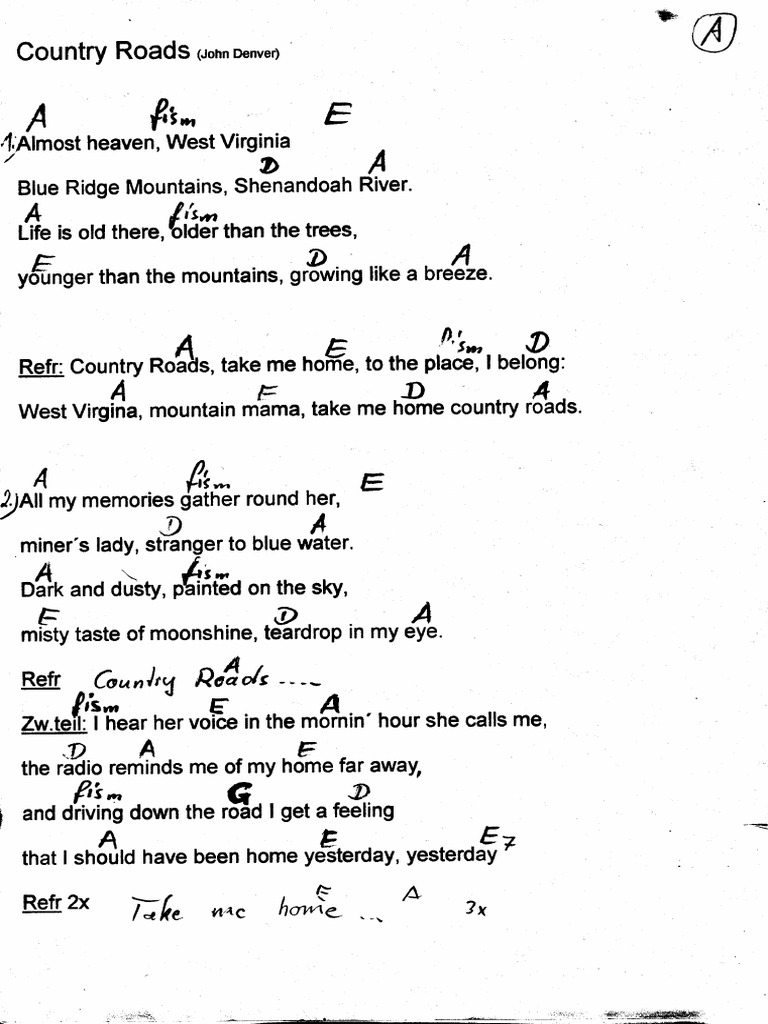 A
Country Roads (John Denver)
A fism E
1. Almost heaven, West Virginia
D A
Blue Ridge Mountains, Shenandoah River.
A fism
Life is old there, older than the trees,
E D A
younger than the mountains, growing like a breeze.
A E fism D
Refr: Country Roads, take me home, to the place, I belong:
A E D A
West Virgina, mountain mama, take me home country roads.
A fism E
2.) All my memories gather round her,
D A
miner´s lady, stranger to blue water.
A fism
Dark and dusty, painted on the sky,
E D A
misty taste of moonshine, teardrop in my eye.
A
Refr Country Roads ....
fism E A
Zw.teil: I hear her voice in the mornin´ hour she calls me,
D A E
the radio reminds me of my home far away,
fism G D
and driving down the road I get a feeling
A E E7
that I should have been home yesterday, yesterday
E A
Refr 2x Take me home ... 3x